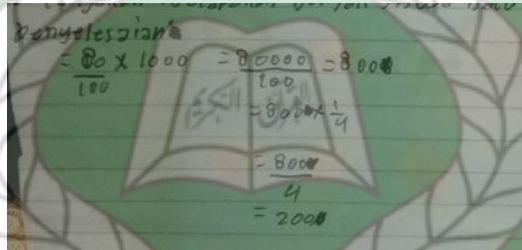 Penyelesaian
= 80/100 x 1000 = 80000/100 = 800
= 800 x 1/4
= 800/4
= 200
القرآن الكريم